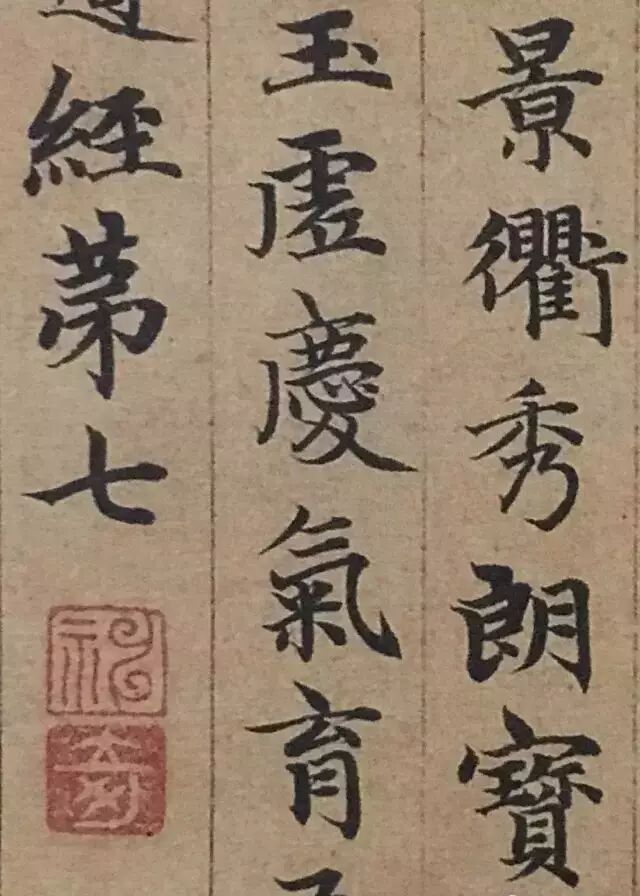 景衢秀朗寶
玉虛慶氣育
經第七